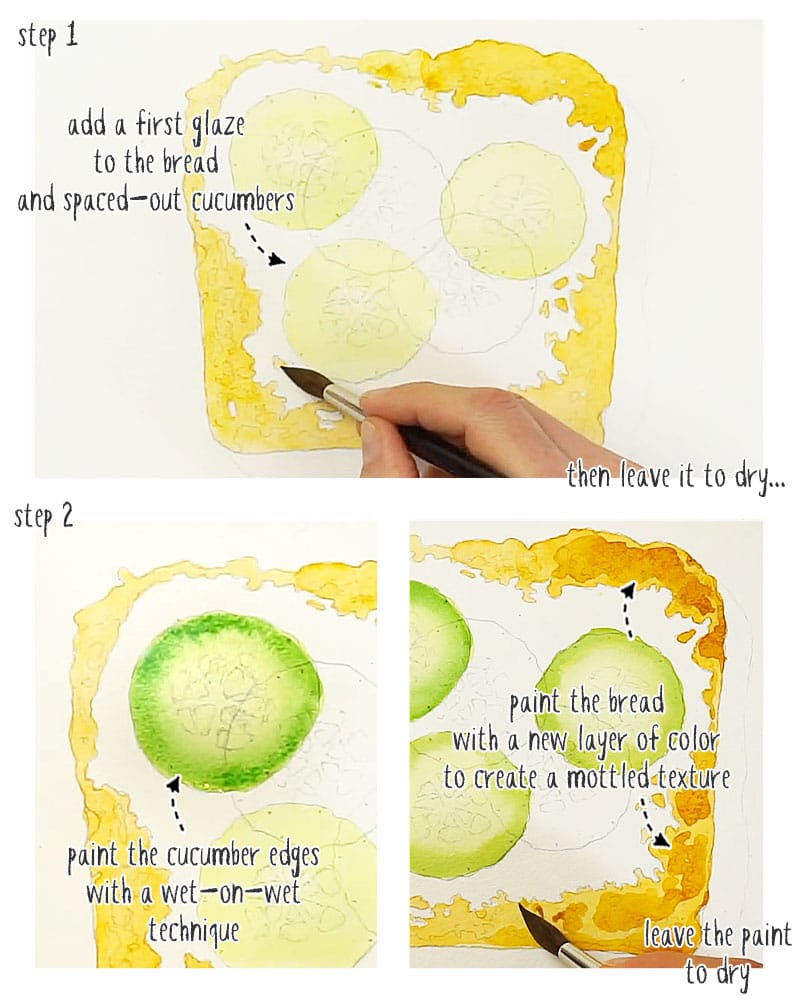 step 1
add a first glaze
to the bread
and spaced-out cucumbers
then leave it to dry...
step 2
paint the cucumber edges
with a wet-on-wet
technique
paint the bread
with a new layer of color
to create a mottled texture
leave the paint
to dry